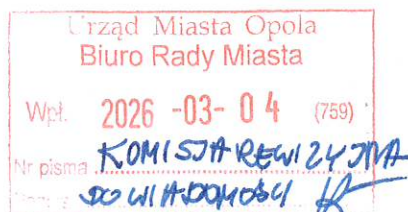 Urząd Miasta Opola
Biuro Rady Miasta
Wpł. 2026 -03- 04 (759)
Nr pisma KOMISJA REWIZYJNA
DO WIADOMOŚCI